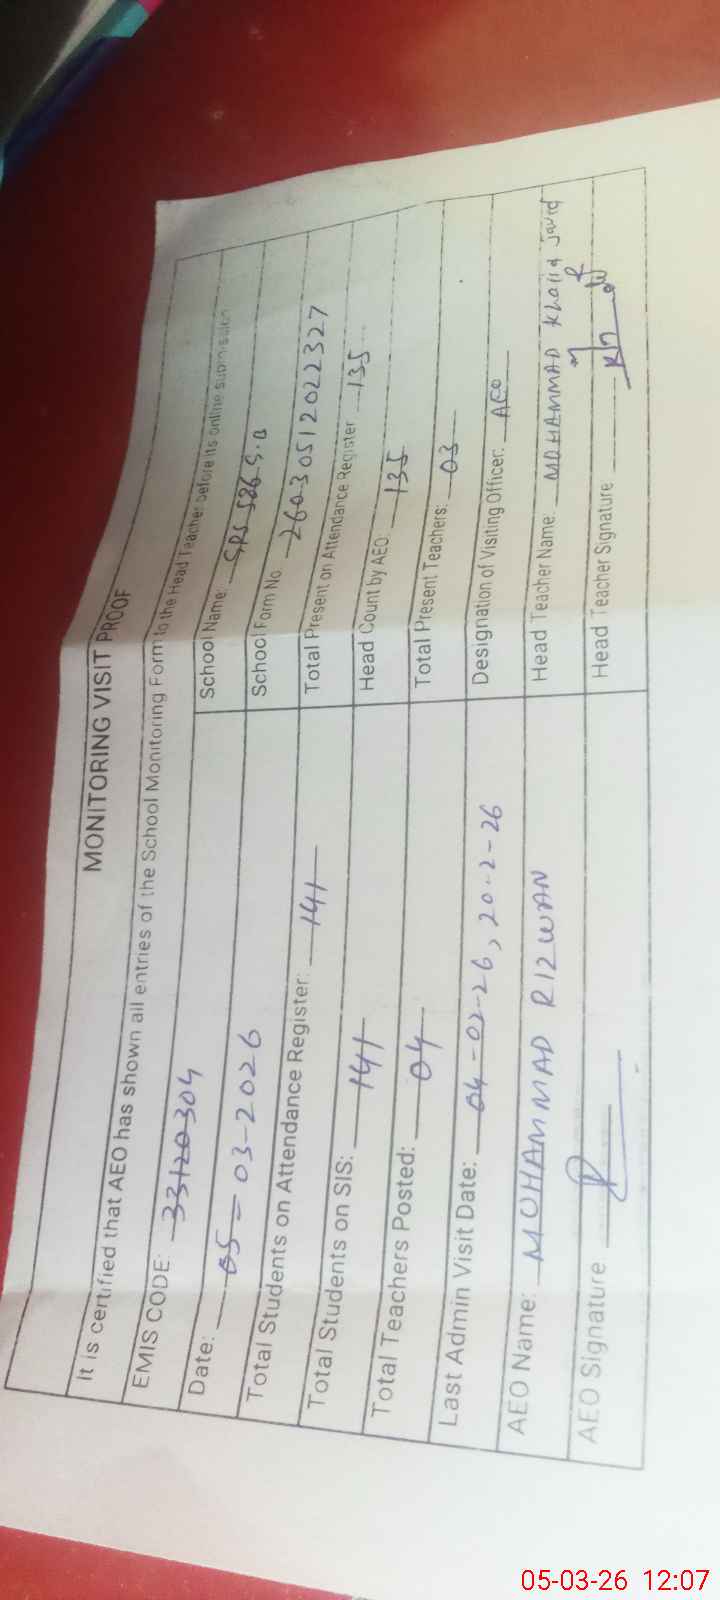 MONITORING VISIT PROOF
It is certified that AEO has shown all entries of the School Monitoring Form to the Head Teacher before its online submission
EMIS CODE: 33120304 School Name: GPS 586 G.B
Date: 05-03-2026 School Form No 26030512022327
Total Students on Attendance Register: 141 Total Present on Attendance Register 135
Total Students on SIS: 141 Head Count by AEO: 135
Total Teachers Posted: 04 Total Present Teachers: 03
Last Admin Visit Date: 04-02-26, 20-2-26 Designation of Visiting Officer: AEO
AEO Name: MOHAMMAD RIZWAN Head Teacher Name: MOHAMMAD Khalid Javed
AEO Signature Head Teacher Signature
05-03-26 12:07